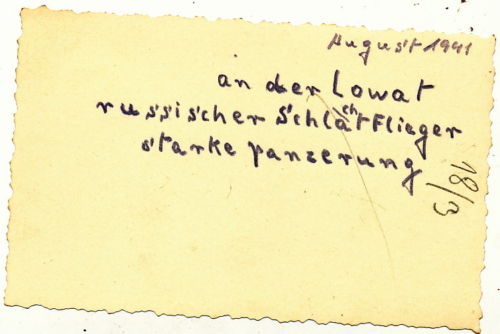 August 1941
an der Lowat
russischer Schlachtflieger
starke panzerung
18/3